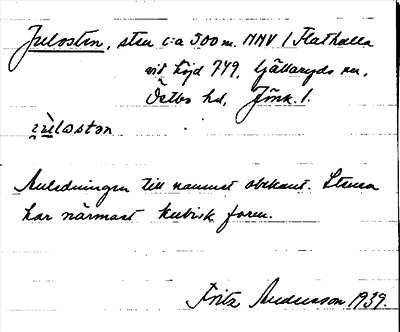 Julosten, sten c:a 500 m. NNV / Flathalla
vid höjd 749, Gällaryds sn,
Östbo hd, Jönk. l.
julostən
Anledningen till namnet obekant. Stenen
har närmast kubisk form.
Fritz Andersson 1939.